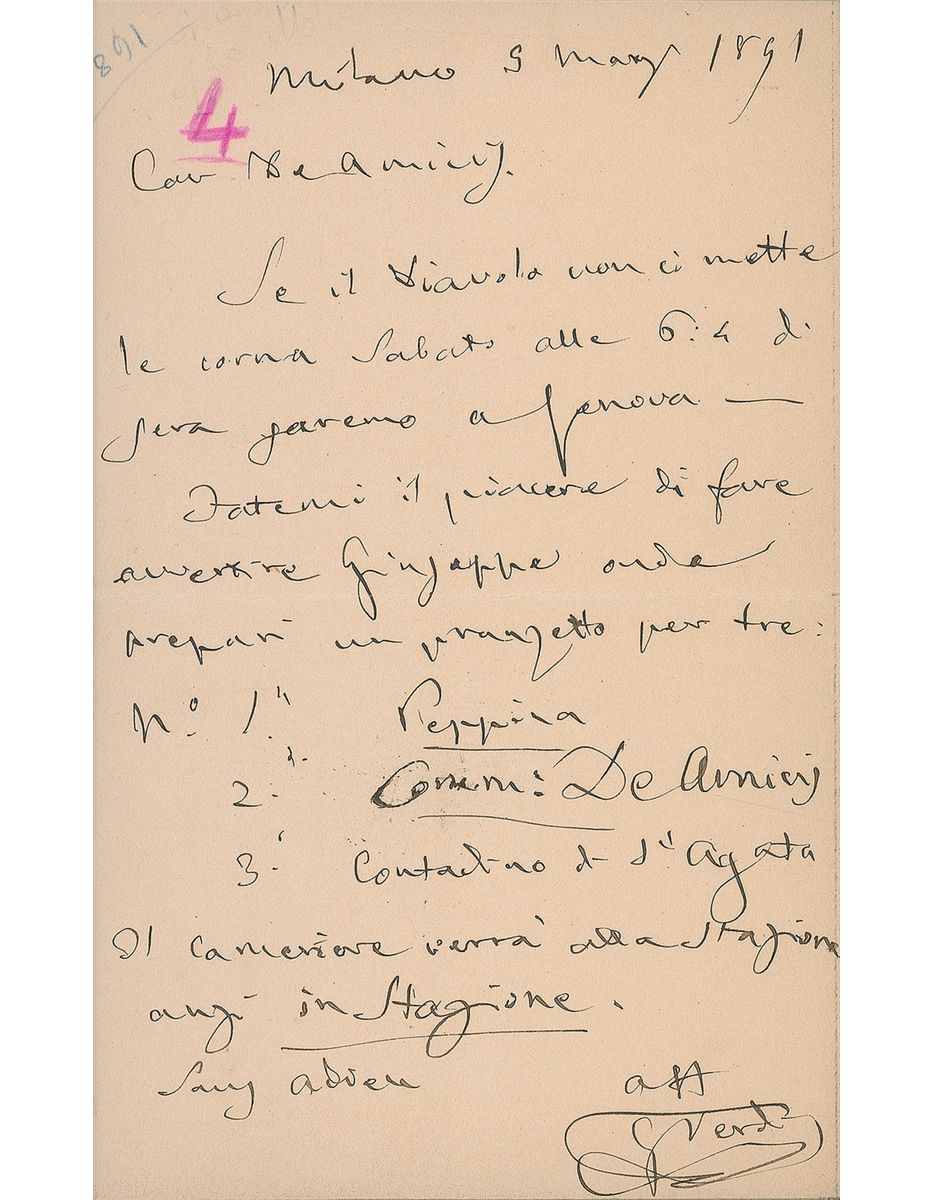 891
Milano 5 Marzo 1891
4
Cav De Amicis.
Se il Diavolo non ci mette
le corna Sabato alle 6:4 di
sera saremo a Genova —
Fatemi il piacere di fare
avvertire Giuseppe onde
prepari un pranzetto per tre:
N.º 1.º Peppina
2.º Comm: De Amicis
3.º Contadino di St Agata
Il cameriere verrà alla Stazione
anzi in Stazione.
Sans adieu aff
G Verdi